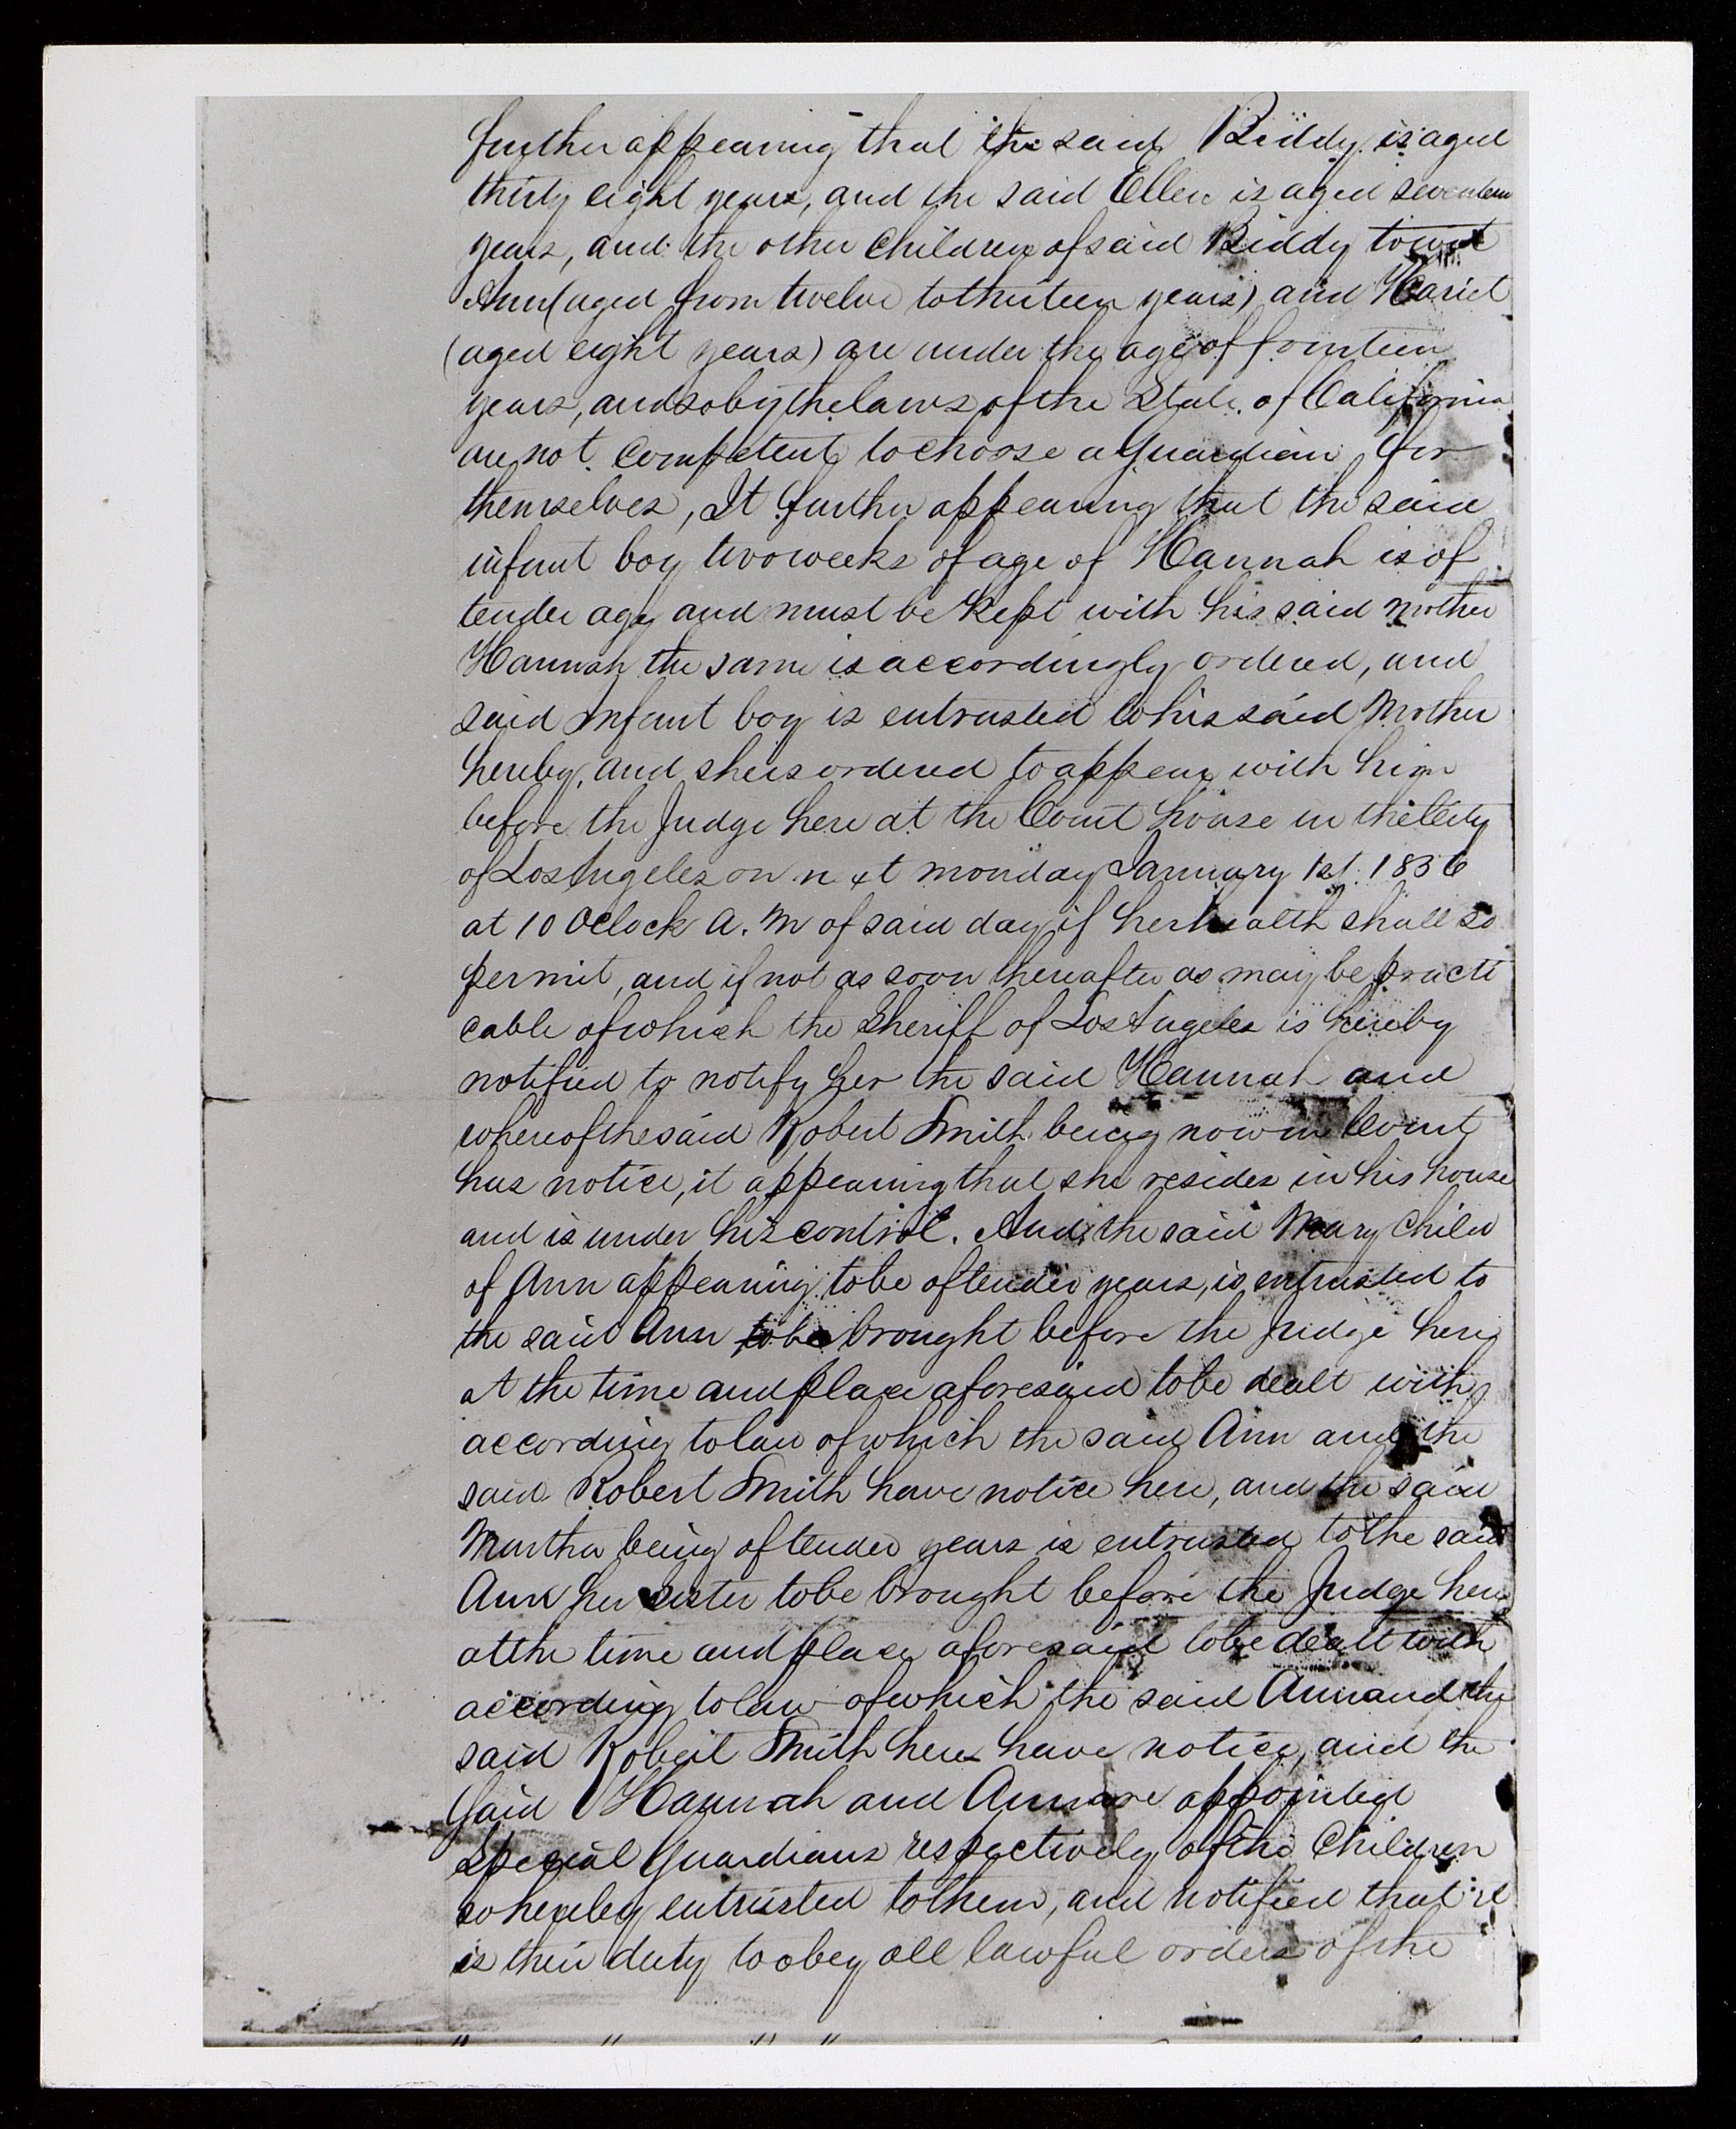 further appearing that the said Biddy is aged
thirty eight years, and the said Ellen is aged seventeen
years, and the other children of said Biddy to wit
Ann (aged from twelve to thirteen years) and Hariet
(aged eight years) are under the age of fourteen
years, and so by the laws of the State of California
are not competent to choose a Guardian for
themselves, It further appearing that the said
infant boy two weeks of age of Hannah is of
tender age and must be kept with his said mother
Hannah the same is accordingly ordered, and
said infant boy is entrusted to his said Mother
hereby, and she is ordered to appear with him
before the Judge here at the Court house in the City
of Los Angeles on next monday January 1st. 1856
at 10 Oclock A. M of said day if her health shall so
permit, and if not as soon thereafter as may be practi
cable of which the Sheriff of Los Angeles is hereby
notified to notify her the said Hannah and
whereof the said Robert Smith being now in Court
has notice, it appearing that she resides in his house
and is under his control. And the said Mary child
of Ann appearing to be of tender years, is entrusted to
the said Ann to be brought before the Judge here
at the time and place aforesaid to be dealt with
according to law of which the said Ann and the
said Robert Smith have notice here, and the said
Martha being of tender years is entrusted to the said
Ann her sister to be brought before the Judge here
at the time and place aforesaid to be dealt with
according to law of which the said Ann and the
said Robert Smith here have notice, and the
said Hannah and Ann are appointed
Special Guardians respectively of the Children
so hereby entrusted to them, and notified that it
is their duty to obey all lawful orders of the